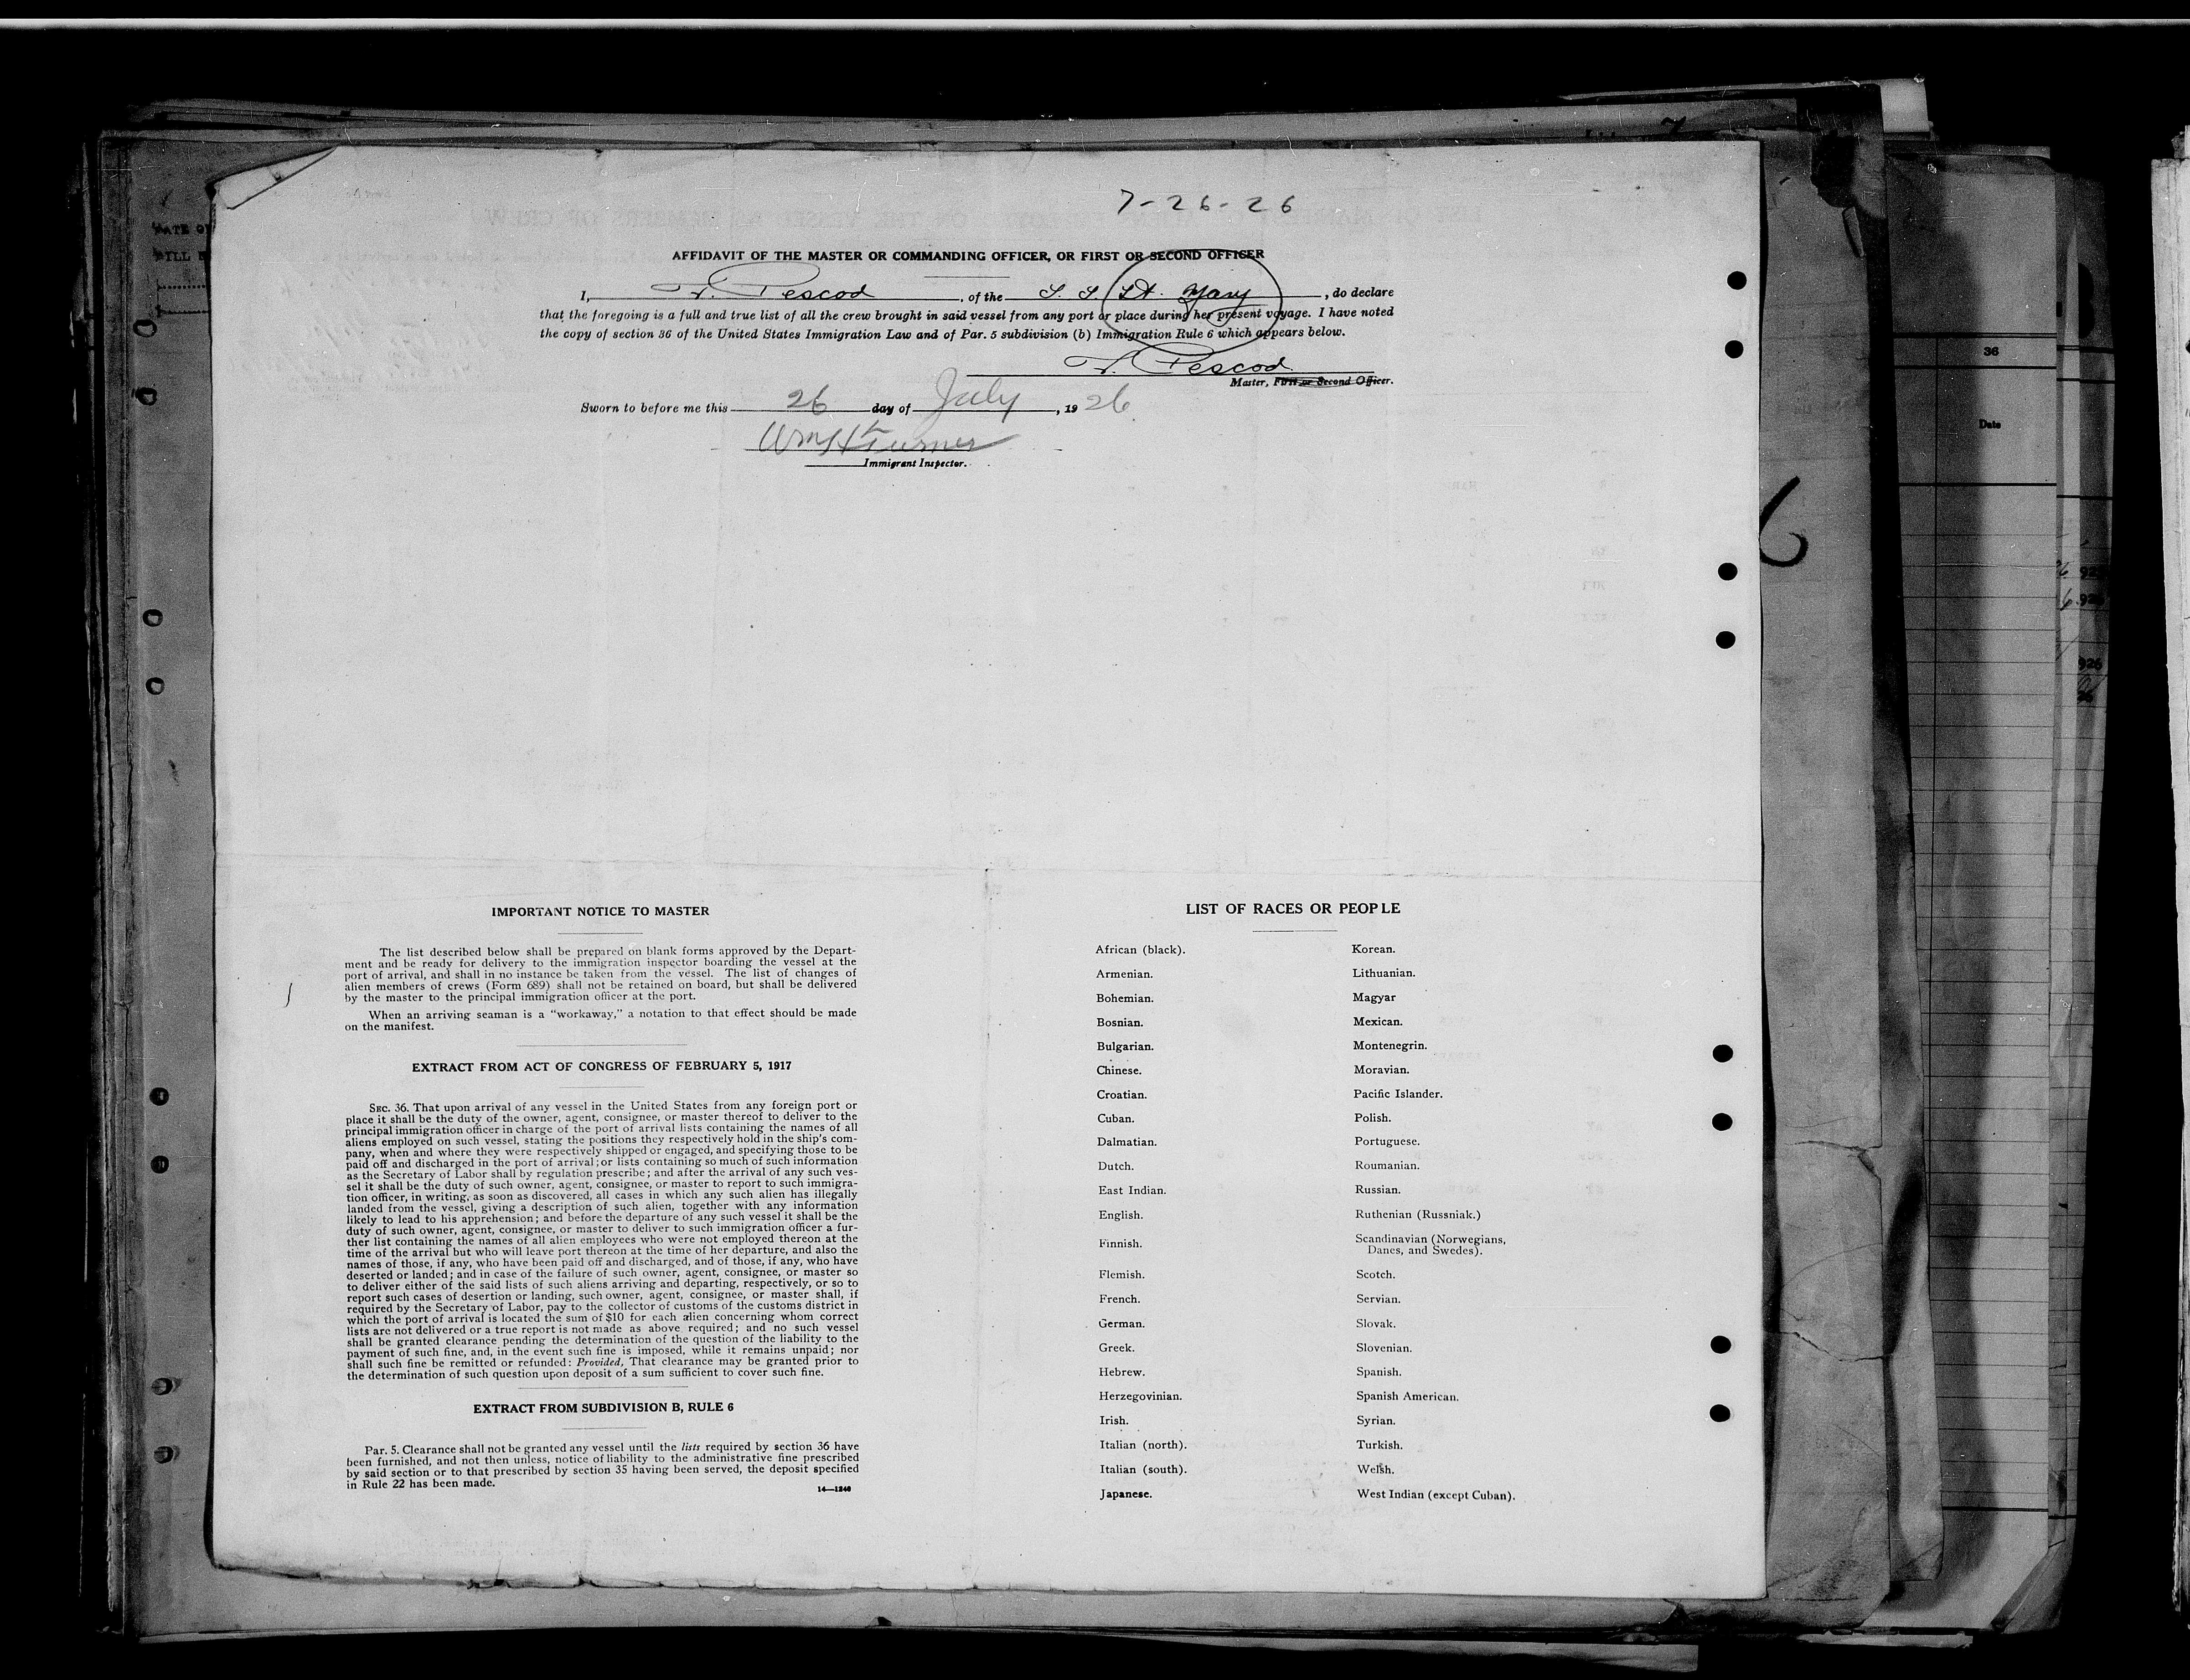 7-26-26
AFFIDAVIT OF THE MASTER OR COMMANDING OFFICER, OR FIRST OR SECOND OFFICER
I, Pescod, of the S. S. St. Mary, do declare
that the foregoing is a full and true list of all the crew brought in said vessel from any port or place during her present voyage. I have noted
the copy of section 36 of the United States Immigration Law and of Par. 5 subdivision (b) Immigration Rule 6 which appears below.
Pescod
Master, First or Second Officer.
Sworn to before me this 26 day of July, 1926
Wm H Turner
Immigrant Inspector.
36
Date
6
IMPORTANT NOTICE TO MASTER
The list described below shall be prepared on blank forms approved by the Depart-
ment and be ready for delivery to the immigration inspector boarding the vessel at the
port of arrival, and shall in no instance be taken from the vessel. The list of changes of
alien members of crews (Form 689) shall not be retained on board, but shall be delivered
by the master to the principal immigration officer at the port.
When an arriving seaman is a "workaway," a notation to that effect should be made
on the manifest.
EXTRACT FROM ACT OF CONGRESS OF FEBRUARY 5, 1917
SEC. 36. That upon arrival of any vessel in the United States from any foreign port or
place it shall be the duty of the owner, agent, consignee, or master thereof to deliver to the
principal immigration officer in charge of the port of arrival lists containing the names of all
aliens employed on such vessel, stating the positions they respectively hold in the ship's com-
pany, when and where they were respectively shipped or engaged, and specifying those to be
paid off and discharged in the port of arrival; or lists containing so much of such information
as the Secretary of Labor shall by regulation prescribe; and after the arrival of any such ves-
sel it shall be the duty of such owner, agent, consignee, or master to report to such immigra-
tion officer, in writing, as soon as discovered, all cases in which any such alien has illegally
landed from the vessel, giving a description of such alien, together with any information
likely to lead to his apprehension; and before the departure of any such vessel it shall be the
duty of such owner, agent, consignee, or master to deliver to such immigration officer a fur-
ther list containing the names of all alien employees who were not employed thereon at the
time of the arrival but who will leave port thereon at the time of her departure, and also the
names of those, if any, who have been paid off and discharged, and of those, if any, who have
deserted or landed; and in case of the failure of such owner, agent, consignee, or master so
to deliver either of the said lists of such aliens arriving and departing, respectively, or so to
report such cases of desertion or landing, such owner, agent, consignee, or master shall, if
required by the Secretary of Labor, pay to the collector of customs of the customs district in
which the port of arrival is located the sum of $10 for each alien concerning whom correct
lists are not delivered or a true report is not made as above required; and no such vessel
shall be granted clearance pending the determination of the question of the liability to the
payment of such fine, and, in the event such fine is imposed, while it remains unpaid; nor
shall such fine be remitted or refunded: Provided, That clearance may be granted prior to
the determination of such question upon deposit of a sum sufficient to cover such fine.
EXTRACT FROM SUBDIVISION B, RULE 6
Par. 5. Clearance shall not be granted any vessel until the lists required by section 36 have
been furnished, and not then unless, notice of liability to the administrative fine prescribed
by said section or to that prescribed by section 35 having been served, the deposit specified
in Rule 22 has been made.
14—1240
LIST OF RACES OR PEOPLE
African (black).
Armenian.
Bohemian.
Bosnian.
Bulgarian.
Chinese.
Croatian.
Cuban.
Dalmatian.
Dutch.
East Indian.
English.
Finnish.
Flemish.
French.
German.
Greek.
Hebrew.
Herzegovinian.
Irish.
Italian (north).
Italian (south).
Japanese.
Korean.
Lithuanian.
Magyar
Mexican.
Montenegrin.
Moravian.
Pacific Islander.
Polish.
Portuguese.
Roumanian.
Russian.
Ruthenian (Russniak.)
Scandinavian (Norwegians,
Danes, and Swedes).
Scotch.
Servian.
Slovak.
Slovenian.
Spanish.
Spanish American.
Syrian.
Turkish.
Welsh.
West Indian (except Cuban).